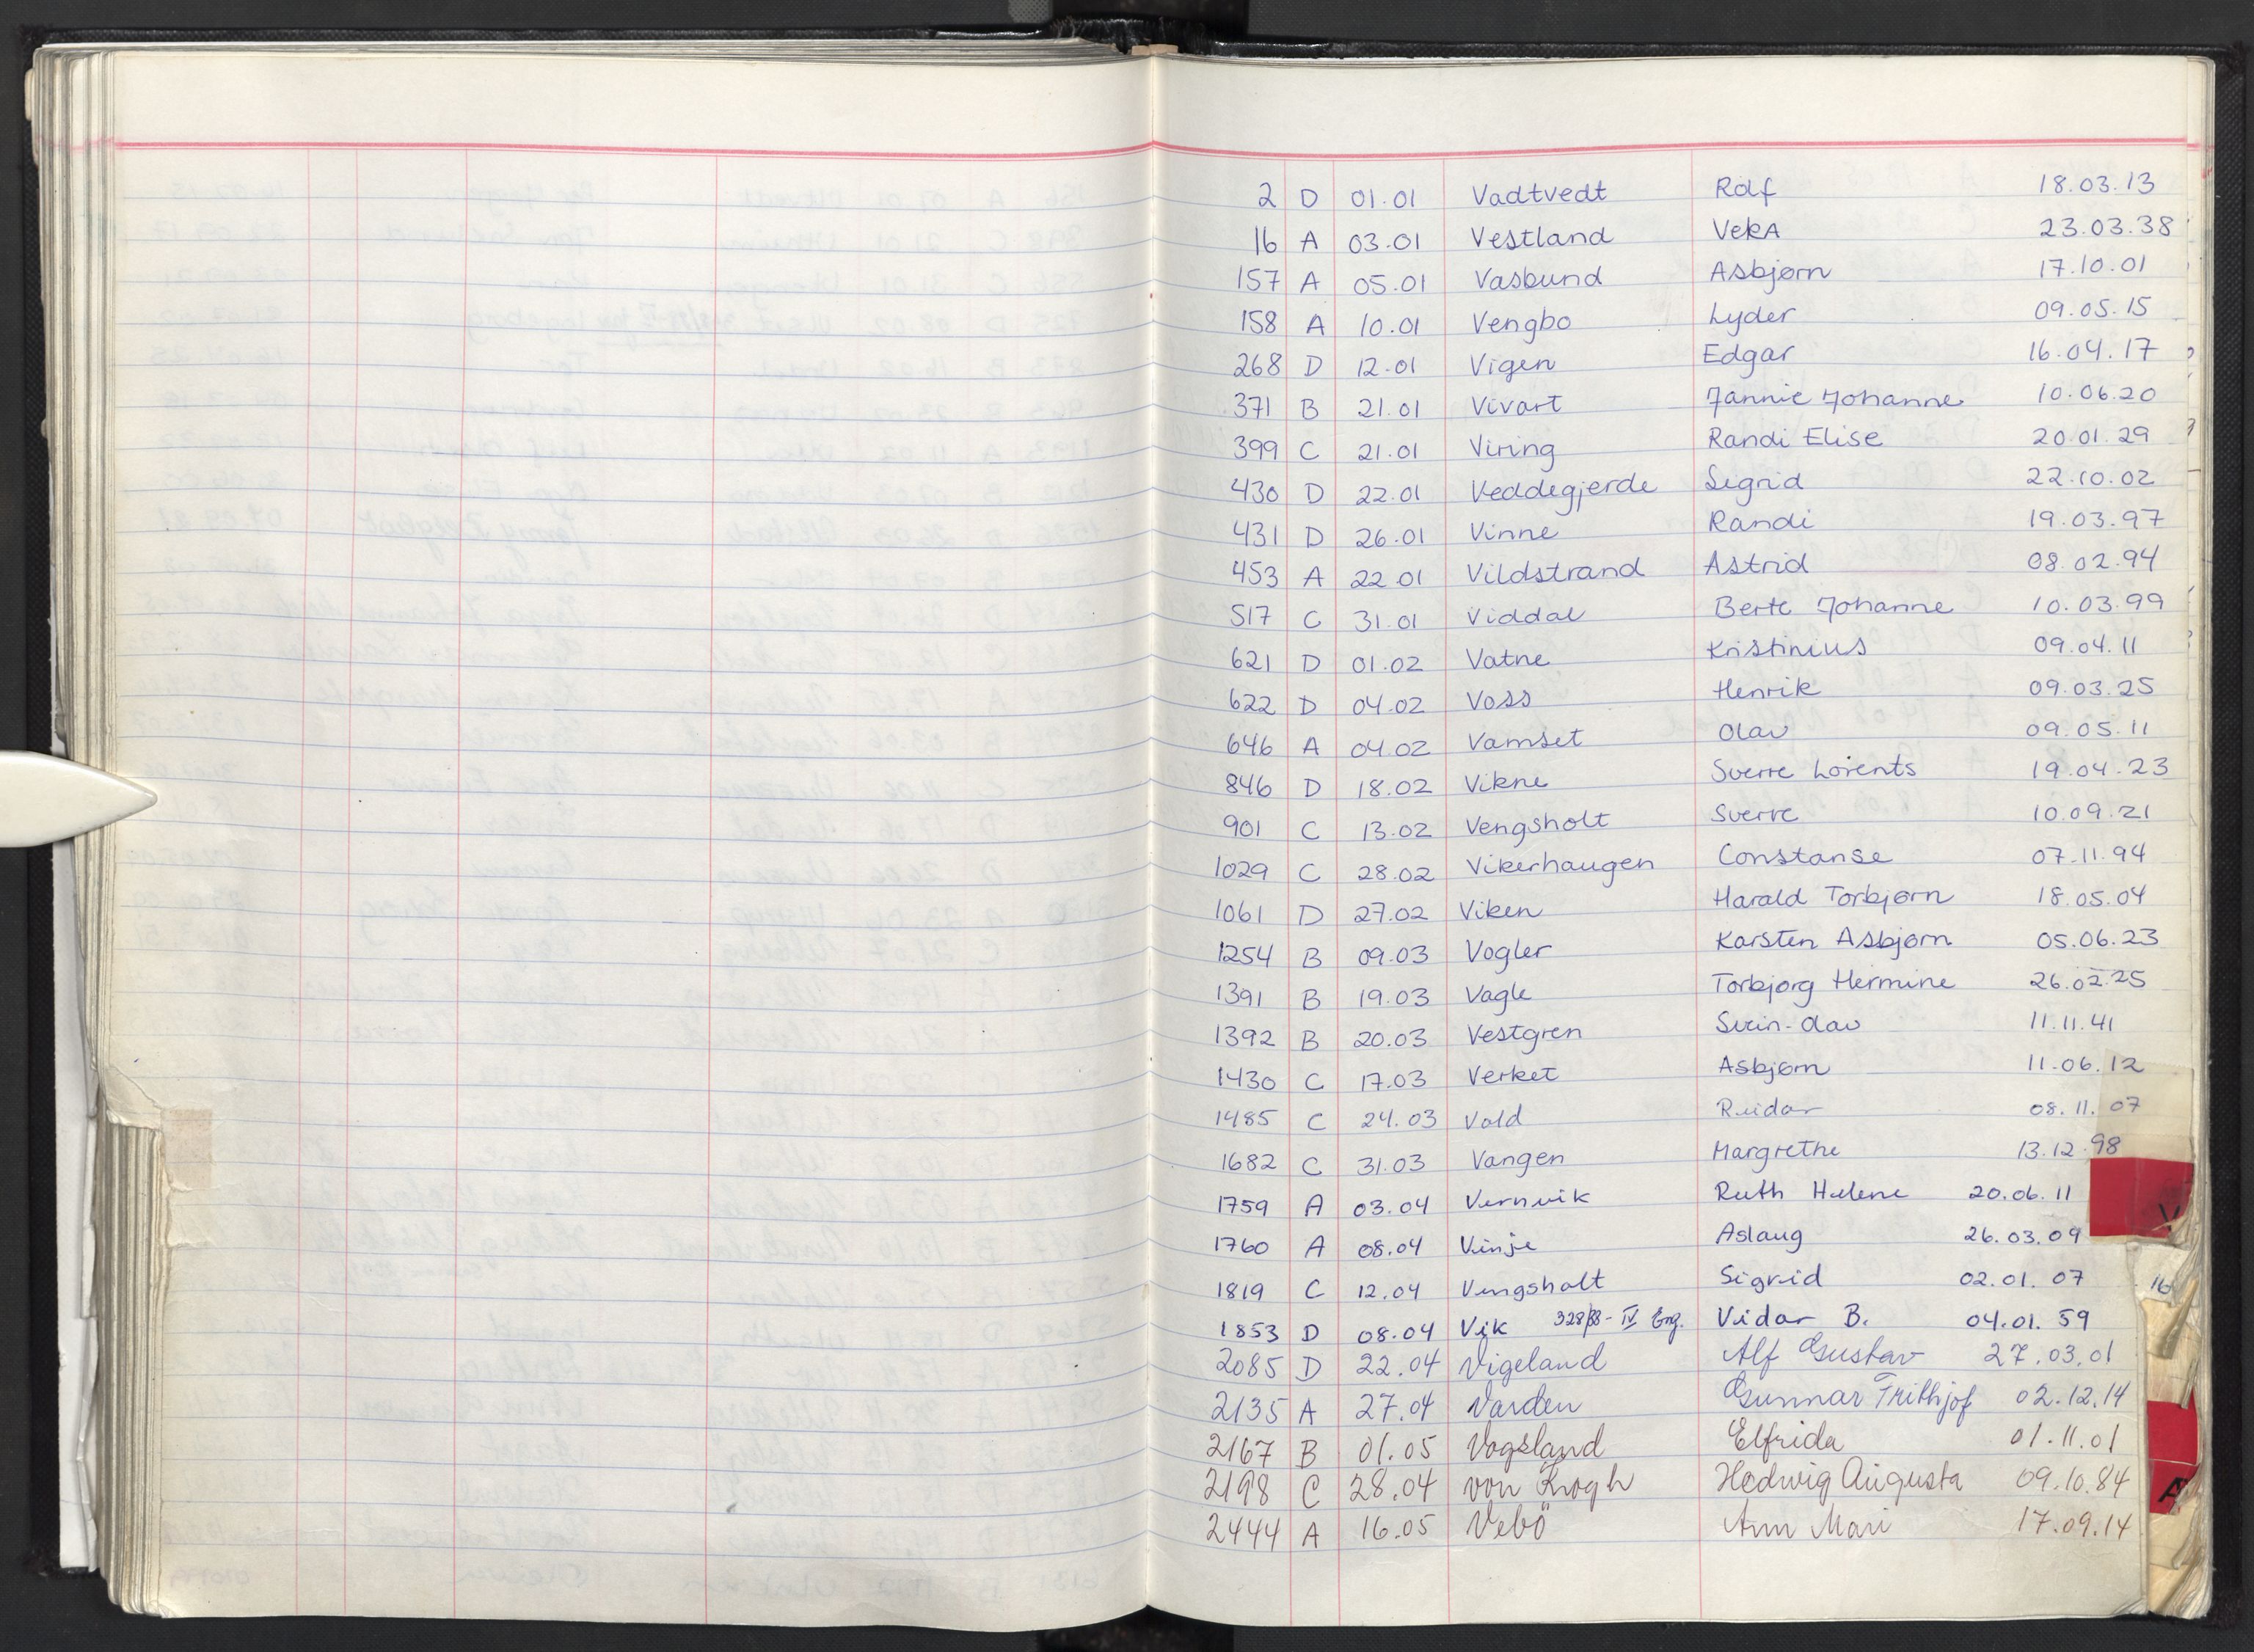 2 D 01.01 Vadtvedt Rolf 18.03.13
16 A 03.01 Vestland Veka 23.03.38
157 A 05.01 Vasbund Asbjørn 17.10.01
158 A 10.01 Vengbo Lyder 09.05.15
268 D 12.01 Vigen Edgar 16.04.17
371 B 21.01 Vivart Jannie Johanne 10.06.20
399 C 21.01 Viring Randi Elise 20.01.29
430 D 22.01 Veddegjerde Sigrid 22.10.02
431 D 26.01 Vinne Randi 19.03.97
453 A 22.01 Vildstrand Astrid 08.02.94
517 C 31.01 Viddal Berte Johanne 10.03.99
621 D 01.02 Vatne Kristinius 09.04.11
622 D 04.02 Voss Henrik 09.03.25
646 A 04.02 Vamset Olav 09.05.11
846 D 18.02 Vikne Sverre Lorents 19.04.23
901 C 13.02 Vengsholt Sverre 10.09.21
1029 C 28.02 Vikerhaugen Constanse 07.11.94
1061 D 27.02 Viken Harald Torbjørn 18.05.04
1254 B 09.03 Vogler Karsten Asbjørn 05.06.23
1391 B 19.03 Vagle Torbjørg Hermine 26.02.25
1392 B 20.03 Vestgren Svein-Olav 11.11.41
1430 C 17.03 Verket Asbjørn 11.06.12
1485 C 24.03 Vold Reidar 08.11.07
1682 C 31.03 Vangen Margrethe 13.12.98
1759 A 03.04 Vernvik Ruth Helene 20.06.11
1760 A 08.04 Vinje Aslaug 26.03.09
1819 C 12.04 Vengsholt Sigrid 02.01.07
1853 D 08.04 Vik 328/88-IV Eng. Vidar B. 04.01.59
2085 D 22.04 Vigeland Alf Gustav 27.03.01
2135 A 27.04 Varden Gunnar Frithjof 02.12.14
2167 B 01.05 Vogsland Elfrida 01.11.01
2198 C 28.04 von Krogh Hedwig Augusta 09.10.84
2444 A 16.05 Vebö Ann Mari 17.09.14
V
16
A